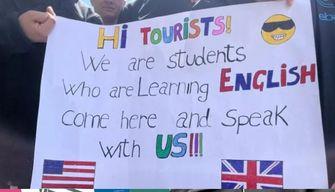 Hi TOURISTS!
We are students
Who are Learning ENGLISH
come here and Speak
with US!!!